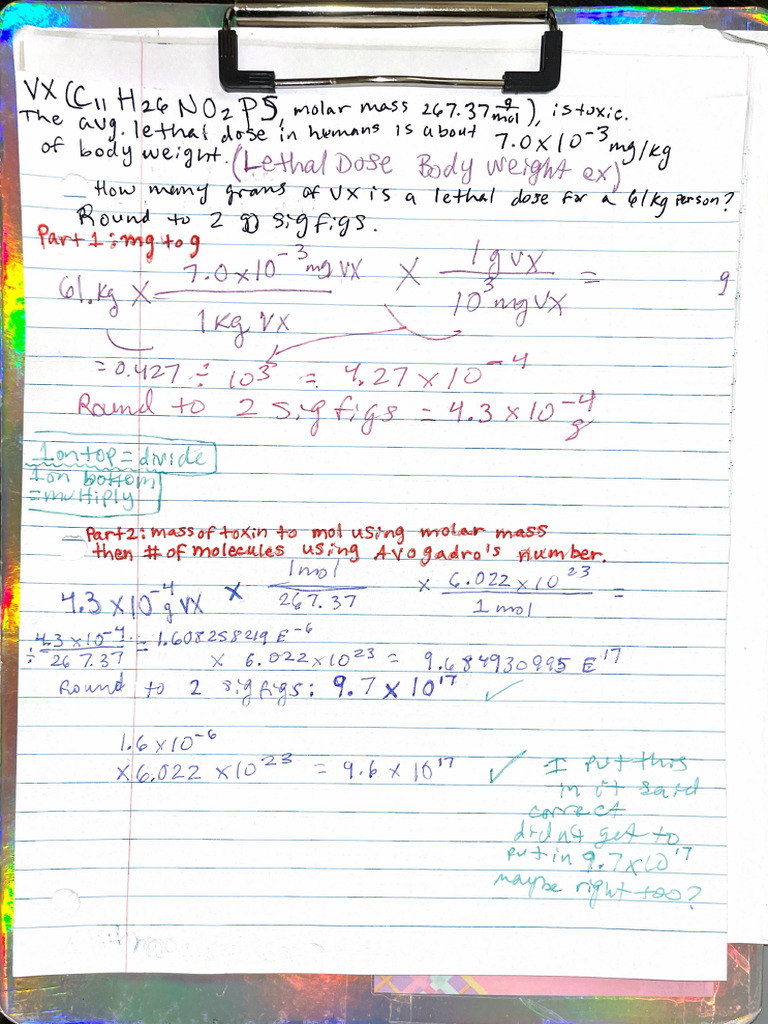 VX (C11 H26 NO2 PS, molar mass 267.37 g/mol), is toxic.
The avg. lethal dose in humans is about 7.0 x 10⁻³ mg/kg
of body weight. (Lethal Dose Body weight ex)
— How many grams of VX is a lethal dose for a 61 kg person?
Round to 2 sig figs.
Part 1: mg to g
61. kg x 7.0 x 10⁻³ mg VX / 1 kg VX x 1 g VX / 10³ mg VX = g
= 0.427 ÷ 10³ = 4.27 x 10⁻⁴
Round to 2 sig figs = 4.3 x 10⁻⁴ g
1 on top = divide
1 on bottom
= multiply
— Part 2: mass of toxin to mol using molar mass
then # of molecules using Avogadro's number.
4.3 x 10⁻⁴ g VX x 1 mol / 267.37 x 6.022 x 10²³ / 1 mol =
÷ 4.3 x 10⁻⁴ / 267.37 = 1.608258219 E⁻⁶
x 6.022 x 10²³ = 9.684930995 E¹⁷
Round to 2 sig figs: 9.7 x 10¹⁷ ✓
1.6 x 10⁻⁶
x 6.022 x 10²³ = 9.6 x 10¹⁷ ✓
I put this
in it said
correct
didnt get to
put in 9.7 x 10¹⁷
maybe right too?